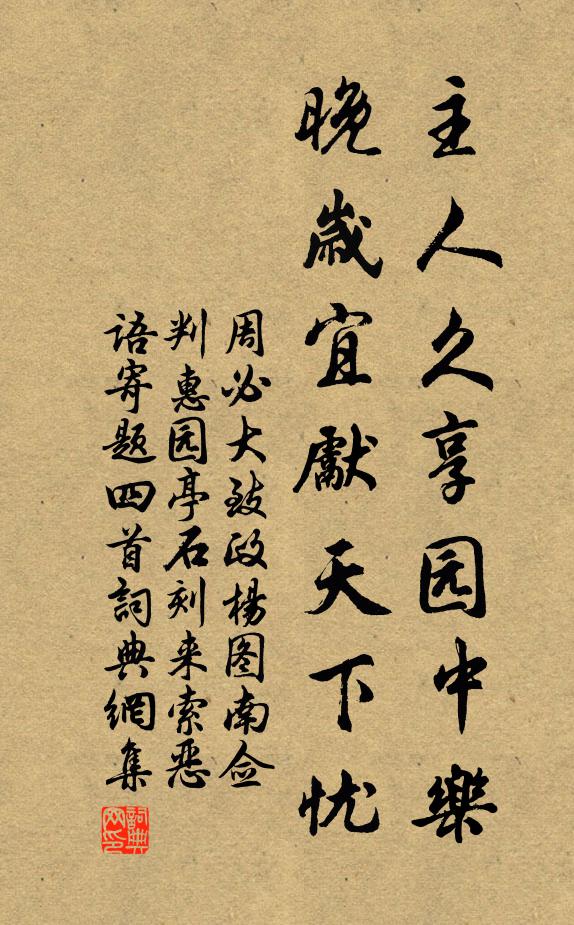 主人久享园中樂
晚歲宜獻天下忧
周必大致政楊图南佥
判惠园亭石刻来索恶
语寄题四首詞典網集
詞典网印